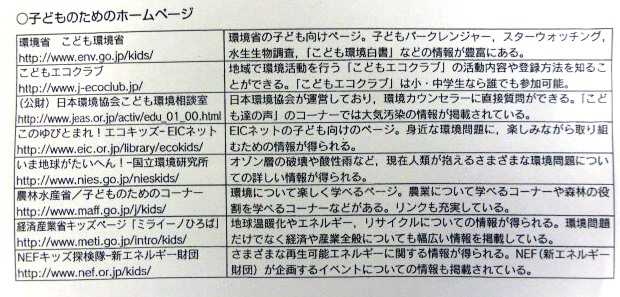 ○子どものためのホームページ
環境省　こども環境省
http://www.env.go.jp/kids/
環境省の子ども向けページ。子どもパークレンジャー，スターウォッチング，
水生生物調査，「こども環境白書」などの情報が豊富にある。
こどもエコクラブ
http://www.j-ecoclub.jp/
地域で環境活動を行う「こどもエコクラブ」の活動内容や登録方法を知るこ
とができる。「こどもエコクラブ」は小・中学生なら誰でも参加可能。
（公財）日本環境協会こども環境相談室
http://www.jeas.or.jp/activ/edu_01_00.html
日本環境協会が運営しており，環境カウンセラーに直接質問ができる。「こど
も達の声」のコーナーでは大気汚染の情報が掲載されている。
このゆびとまれ！エコキッズ-EICネット
http://www.eic.or.jp/library/ecokids/
EICネットの子ども向けのページ。身近な環境問題に，楽しみながら取り組
むための情報が得られる。
いま地球がたいへん！-国立環境研究所
http://www.nies.go.jp/nieskids/
オゾン層の破壊や酸性雨など，現在人類が抱えるさまざまな環境問題につい
ての詳しい情報が得られる。
農林水産省／子どものためのコーナー
http://www.maff.go.jp/j/kids/
環境について楽しく学べるページ。農業について学べるコーナーや森林の役
割を学べるコーナーなどがある。リンクも充実している。
経済産業省キッズページ「ミライーノひろば」
http://www.meti.go.jp/intro/kids/
地球温暖化やエネルギー，リサイクルについての情報が得られる。環境問題
だけでなく経済や産業全般についても幅広い情報を掲載している。
NEFキッズ探検隊-新エネルギー財団
http://www.nef.or.jp/kids/
さまざまな再生可能エネルギーに関する情報が得られる。NEF（新エネルギー
財団）が企画するイベントについての情報も掲載されている。